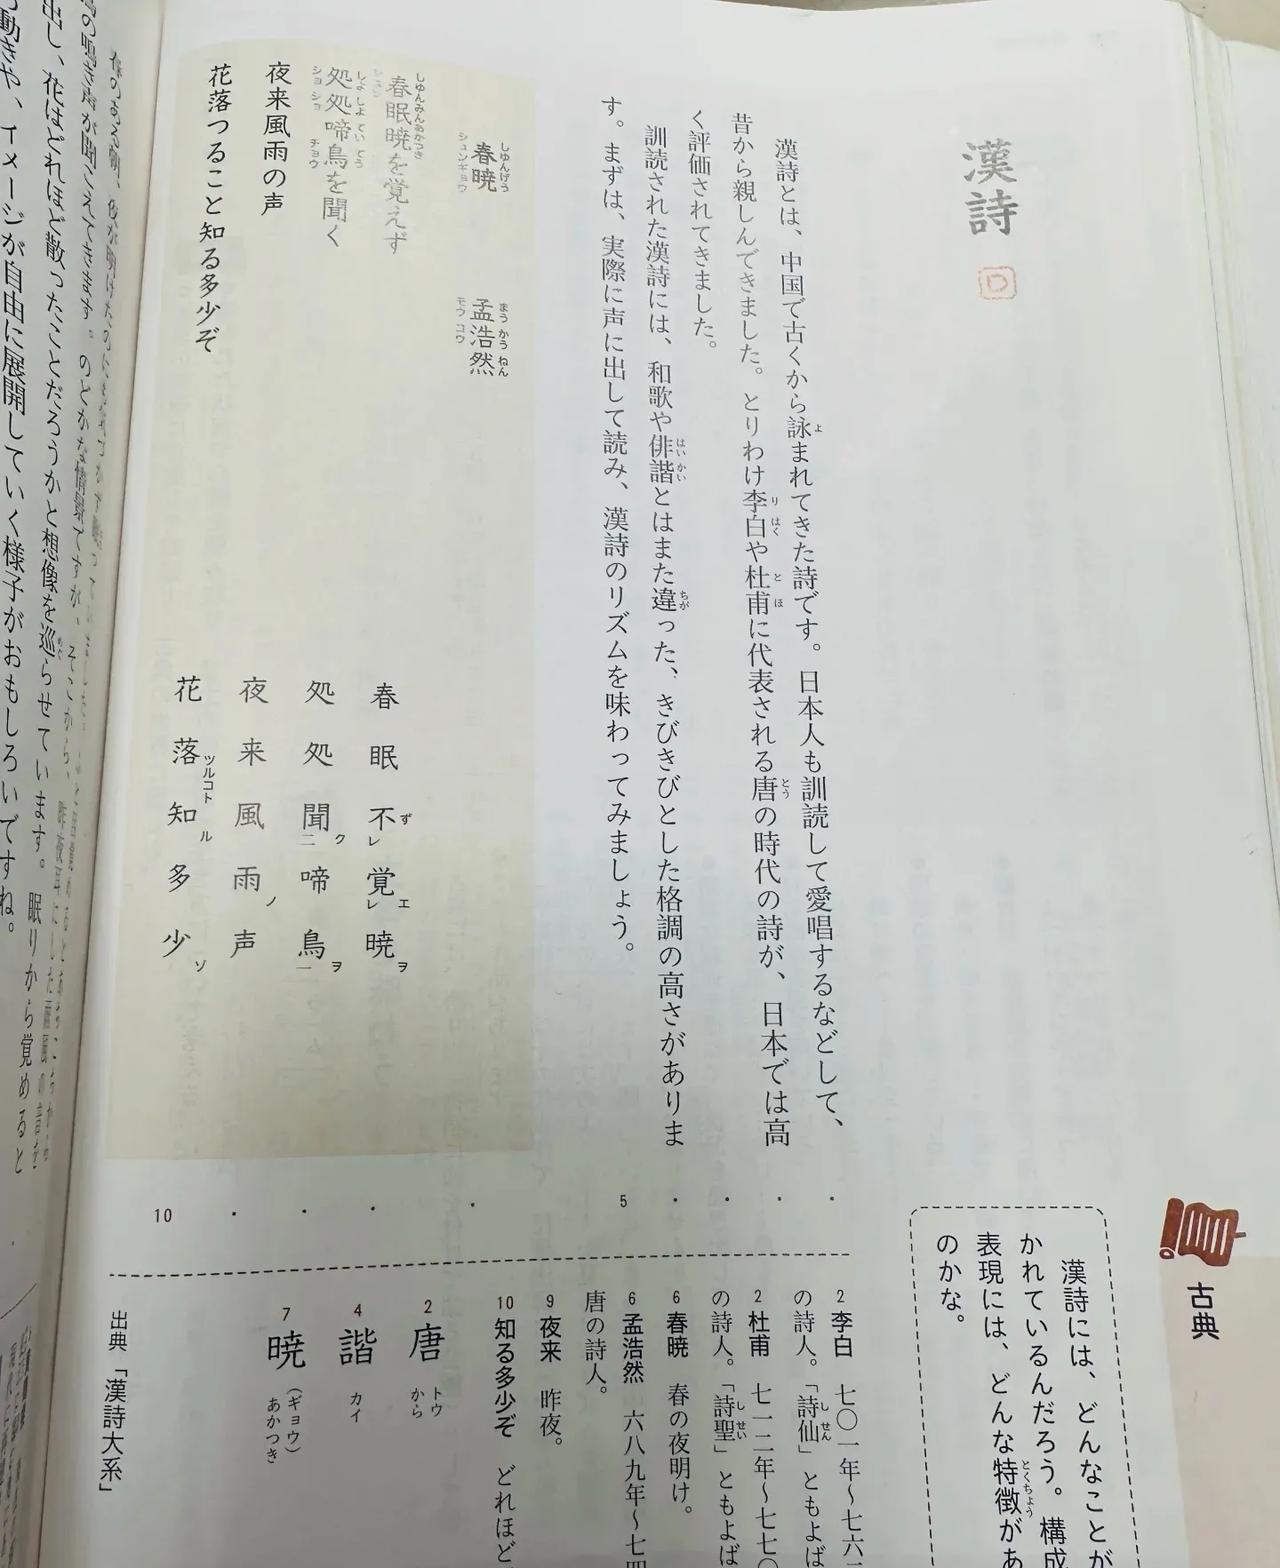 漢詩
漢詩とは、中国で古くから詠まれてきた詩です。日本人も訓読して愛唱するなどして、
昔から親しんできました。とりわけ李白や杜甫に代表される唐の時代の詩が、日本では高
く評価されてきました。
訓読された漢詩には、和歌や俳諧とはまた違った、きびきびとした格調の高さがありま
す。まずは、実際に声に出して読み、漢詩のリズムを味わってみましょう。
春暁 孟浩然
春眠暁を覚えず
処処啼鳥を聞く
夜来風雨の声
花落つること知る多少ぞ
春眠不ずレ覚エレ暁ヲ
処処聞ク二啼鳥ヲ一
夜来風雨ノ声
花落ツルコト知ル多少ゾ
5
10
古典
漢詩には、どんなことが
かれているんだろう。構成
表現には、どんな特徴があ
のかな。
2 李白 七〇一年〜七六
の詩人。「詩仙」ともよば
2 杜甫 七一二年〜七七〇
の詩人。「詩聖」ともよば
6 春暁 春の夜明け。
6 孟浩然 六八九年〜七四
唐の詩人。
9 夜来 昨夜。
10 知る多少ぞ どれほど
2 唐 トウ から
4 諧 カイ
7 暁 (ギョウ) あかつき
出典「漢詩大系」
出し、花はどれほど散ったことだろうかと想像を巡らせています。眠りから覚めると
動きや、イメージが自由に展開していく様子がおもしろいですね。